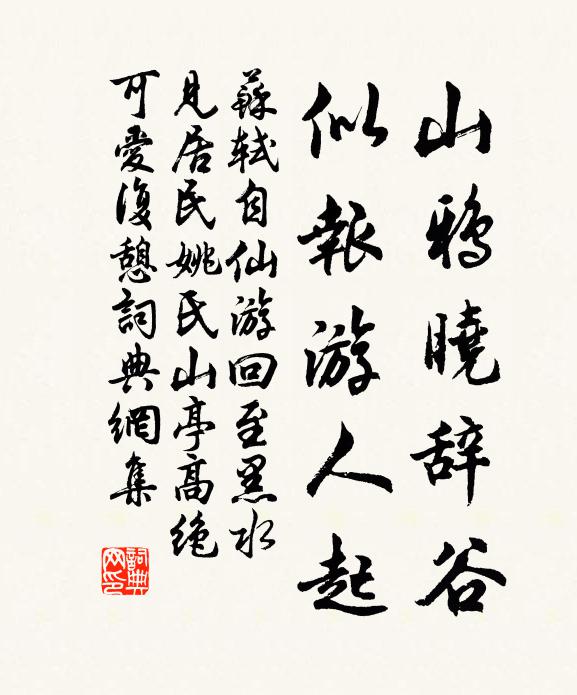 山鴉曉辞谷
似報游人起
蘇軾自仙游回至黑水
見居民姚氏山亭高绝
可愛復憩詞典網集
詞典网印